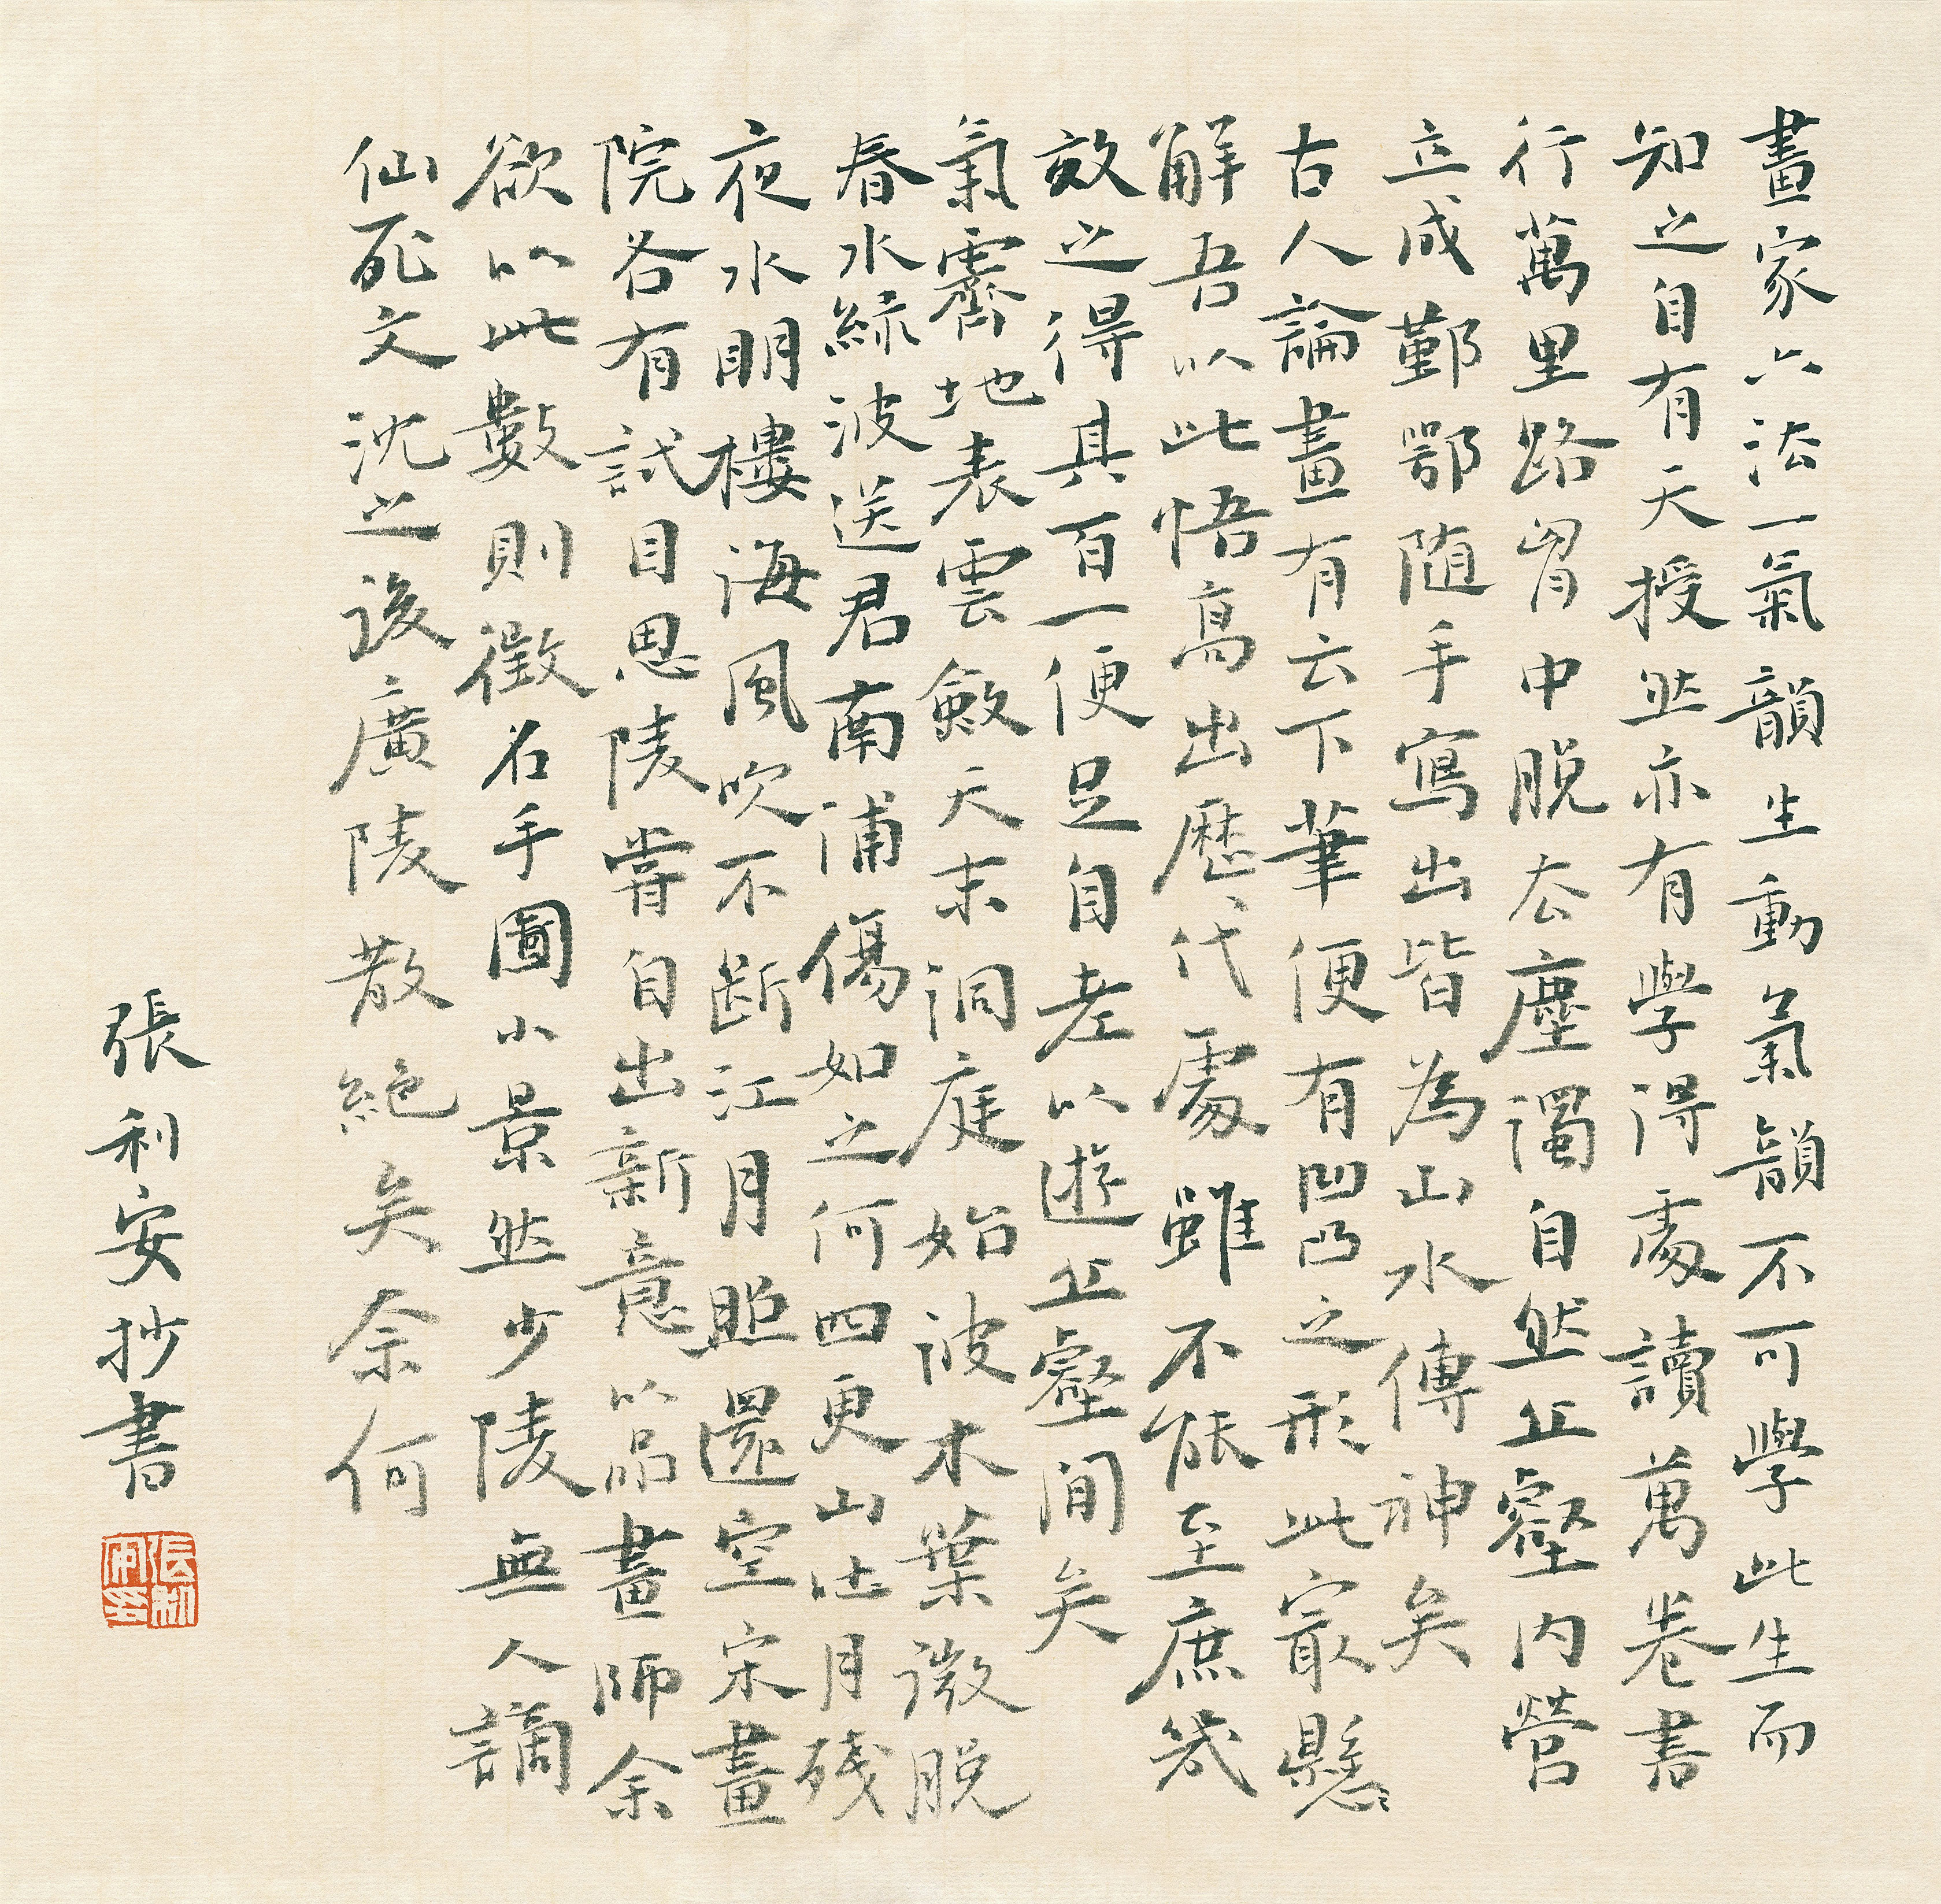 畫家六法一氣韻生動氣韻不可學此生而
知之自有天授然亦有學得處讀萬卷書
行萬里路胷中脫去塵濁自然丘壑內營
立成鄞鄂随手寫出皆為山水傳神矣
古人論畫有云下筆便有凹凸之形此冣懸
解吾以此悟高出歷代處雖不能至庶幾
效之得其百一便足自老以遊丘壑間矣
氣霽地表雲斂天末洞庭始波木葉微脫
春水綠波送君南浦傷如之何四更山吐月殘
夜水明樓海風吹不斷江月照還空宋畫
院各有試目思陵嘗自出新意以品畫師余
欲以此數則徵名手圖小景然少陵無人謫
仙死文沈之後廣陵散絕矣余何
張利安抄書